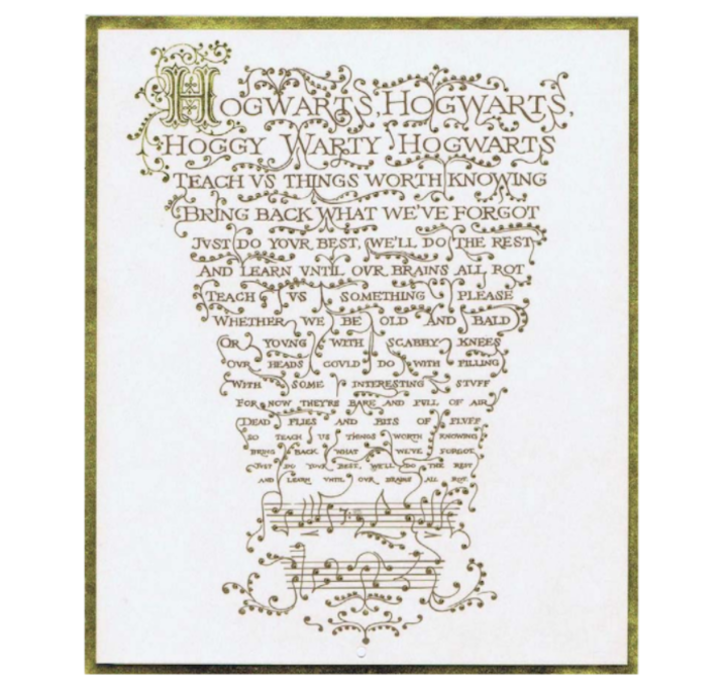 HOGWARTS, HOGWARTS,
HOGGY WARTY HOGWARTS
TEACH VS THINGS WORTH KNOWING
BRING BACK WHAT WE'VE FORGOT
JVST DO YOVR BEST, WE'LL DO THE REST
AND LEARN VNTIL OVR BRAINS ALL ROT
TEACH VS SOMETHING PLEASE
WHETHER WE BE OLD AND BALD
OR YOVNG WITH SCABBY KNEES
OVR HEADS COVLD DO WITH FILLING
WITH SOME INTERESTING STVFF
FOR NOW THEY'RE BARE AND FVLL OF AIR,
DEAD FLIES AND BITS OF FLVFF
SO TEACH US THINGS WORTH KNOWING
BRING BACK WHAT WE'VE FORGOT
JVST DO YOVR BEST, WE'LL DO THE REST
AND LEARN VNTIL OVR BRAINS ALL ROT.